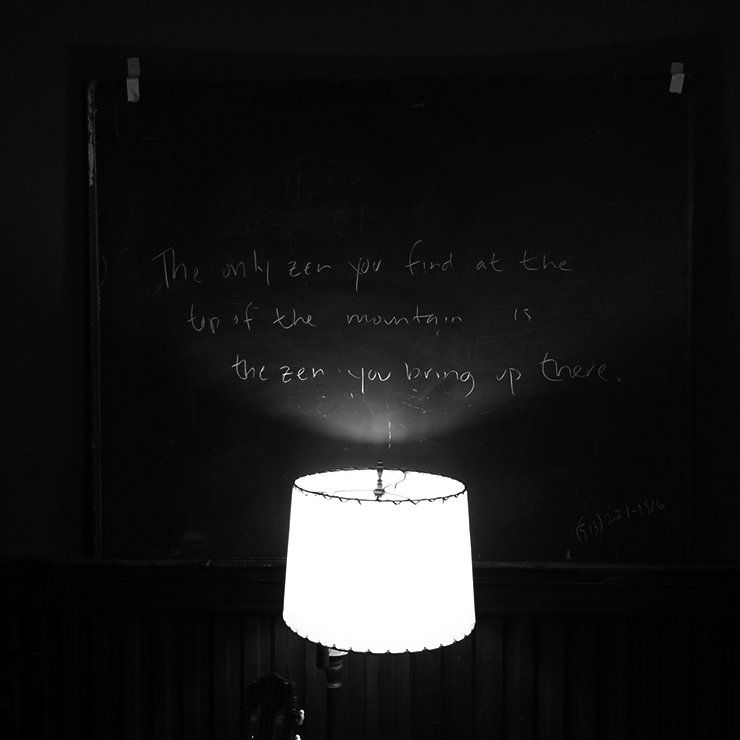 The only zen you find at the
top of the mountain is
the zen you bring up there.
(513) 221-1516